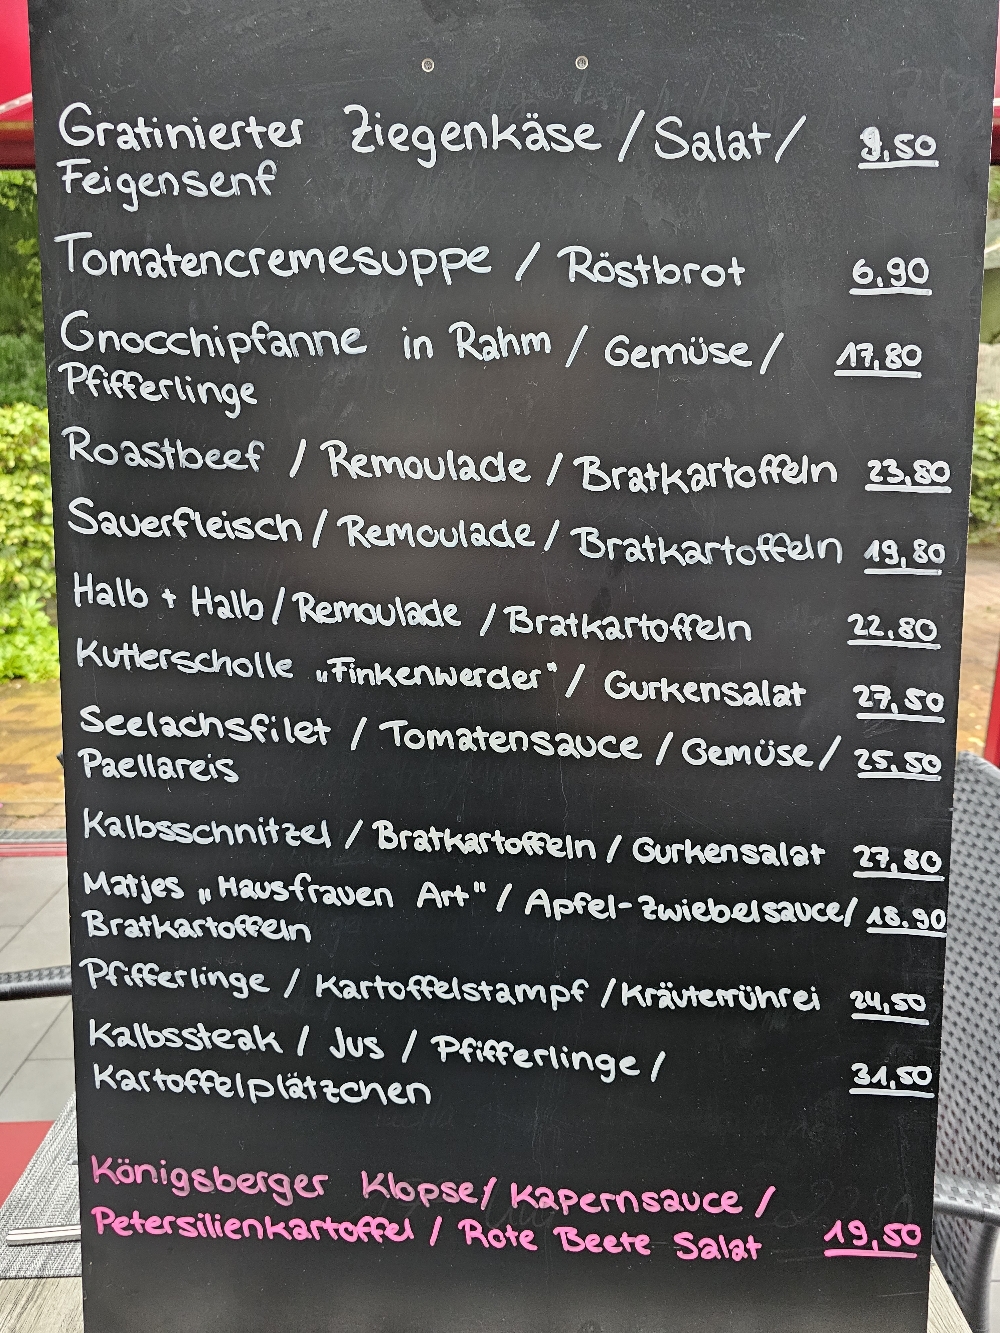 Gratinierter Ziegenkäse / Salat / 9,50
Feigensenf
Tomatencremesuppe / Röstbrot 6,90
Gnocchipfanne in Rahm / Gemüse / 17,80
Pfifferlinge
Roastbeef / Remoulade / Bratkartoffeln 23,80
Sauerfleisch / Remoulade / Bratkartoffeln 19,80
Halb + Halb / Remoulade / Bratkartoffeln 22,80
Kutterscholle „Finkenwerder" / Gurkensalat 27,50
Seelachsfilet / Tomatensauce / Gemüse / 25.50
Paellareis
Kalbsschnitzel / Bratkartoffeln / Gurkensalat 27,80
Matjes „Hausfrauen Art" / Apfel-Zwiebelsauce / 18.90
Bratkartoffeln
Pfifferlinge / Kartoffelstampf / Kräuterrührei 24,50
Kalbssteak / Jus / Pfifferlinge /
Kartoffelplätzchen 31,50
Königsberger Klopse / Kapernsauce /
Petersilienkartoffel / Rote Beete Salat 19,50